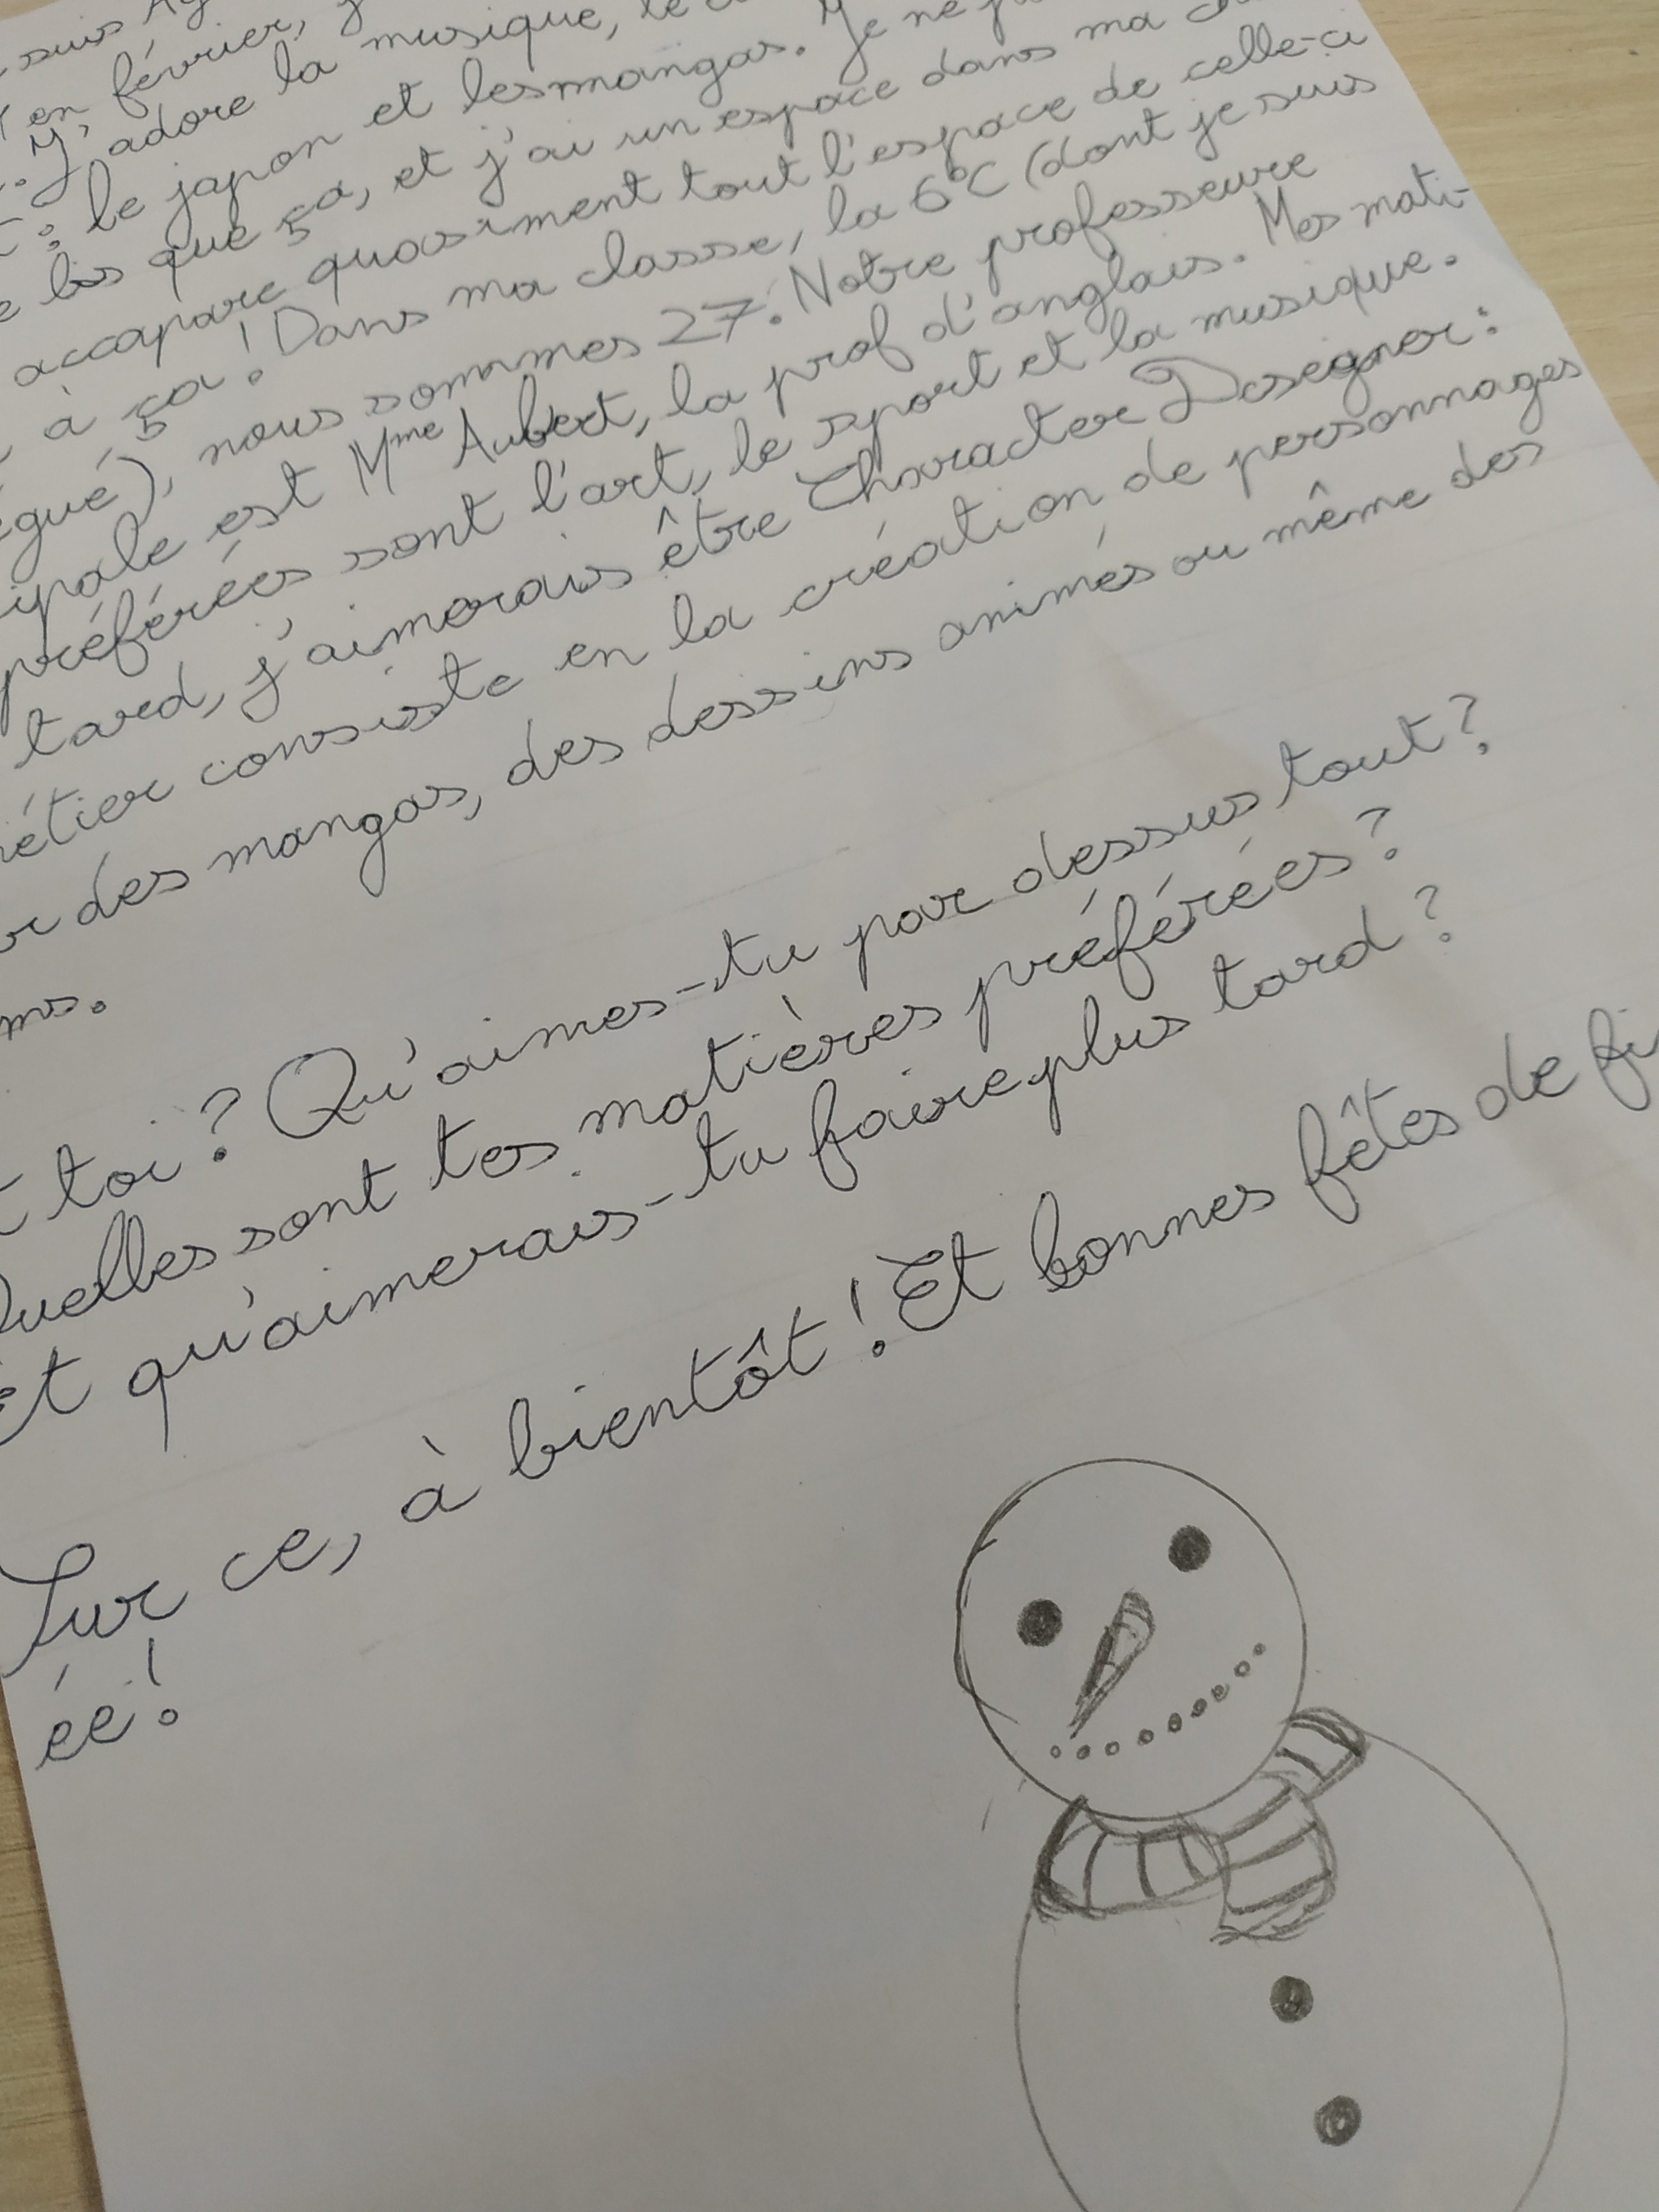 suis
en février,
J'adore la musique, le
: le japon et les mangas. Je ne
lis que ça, et j'ai un espace dans ma
accapare quasiment tout l'espace de celle-ci
à ça ! Dans ma classe, la 6°C (dont je suis
égué), nous sommes 27. Notre professeure
ipale est Mme Aubert, la prof d'anglais. Mes mati-
préférées sont l'art, le sport et la musique.
tard, j'aimerais être Character Designer :
étier consiste en la création de personnages
des mangas, des dessins animés ou même des
ms.
t toi ? Qu'aimes-tu par dessus tout ?
Quelles sont tes matières préférées ?
Et qu'aimerais-tu faire plus tard ?
Sur ce, à bientôt ! Et bonnes fêtes de fi
ée !